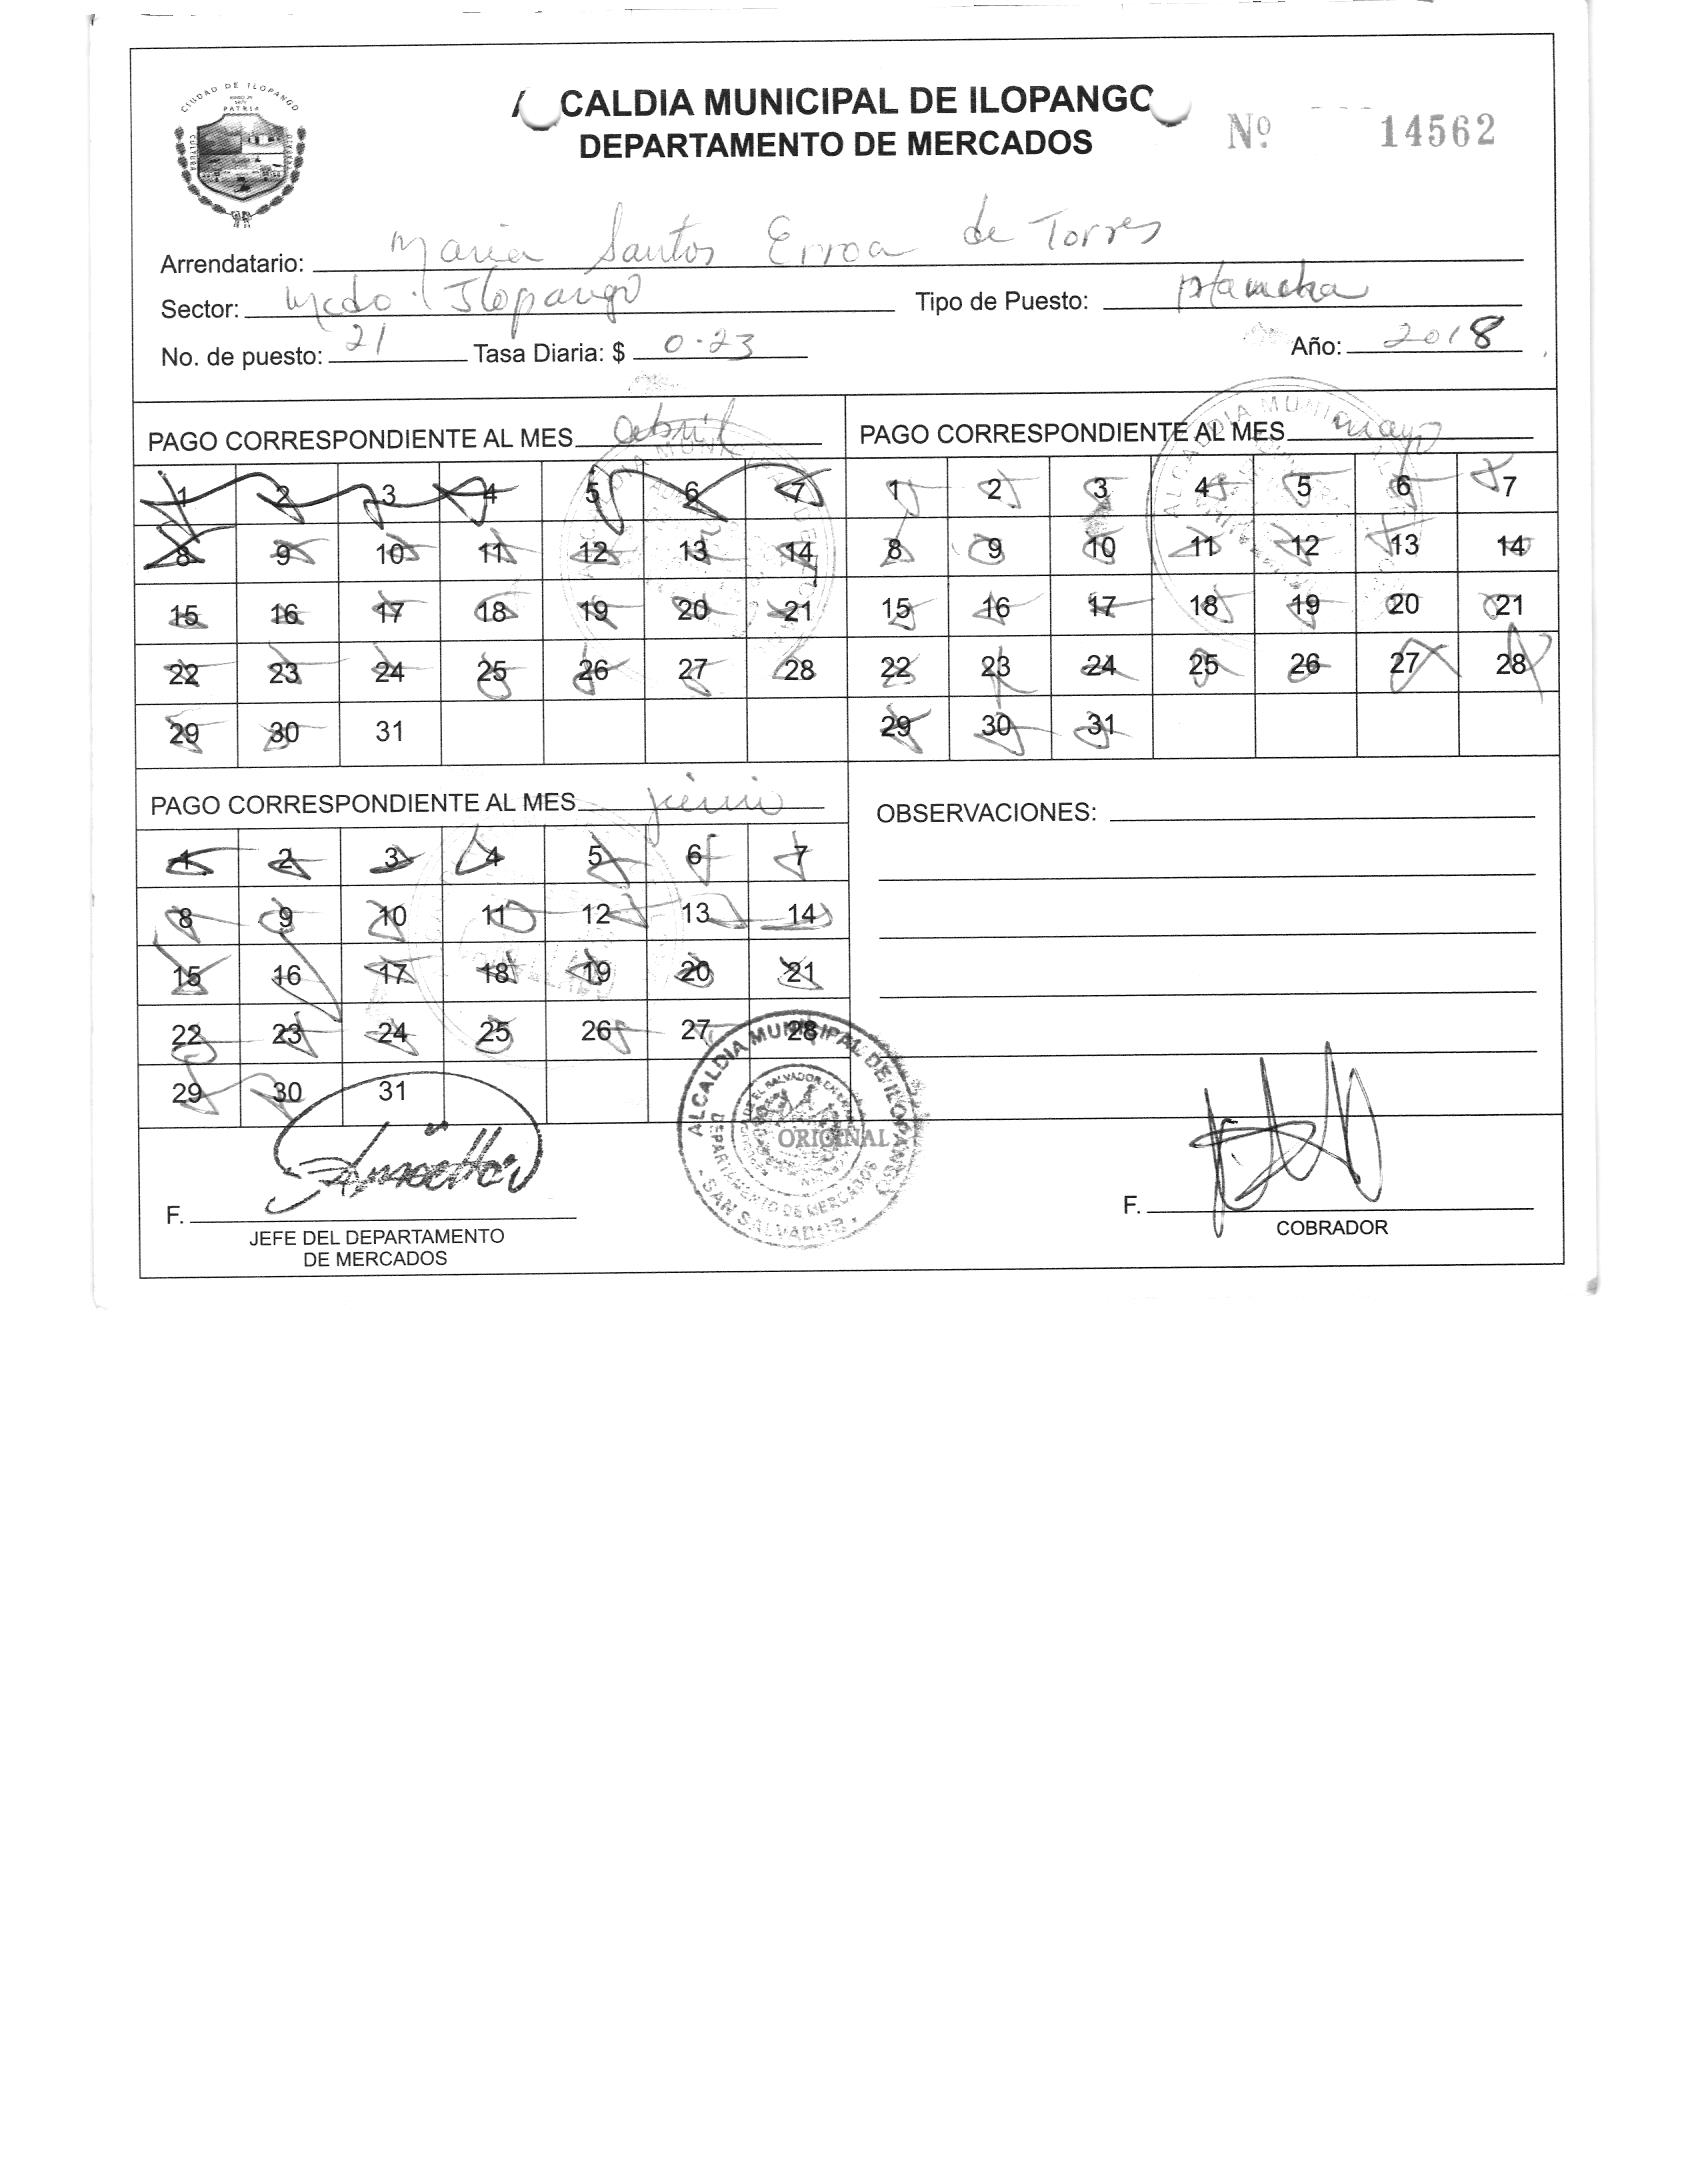 CIUDAD DE ILOPANGO
PATRIA
CULTURA
ALCALDIA MUNICIPAL DE ILOPANGO
DEPARTAMENTO DE MERCADOS
Nº 14562
Arrendatario: Maria Santos Erroa de Torres
Sector: Mcdo. Ilopango Tipo de Puesto: plancha
No. de puesto: 21 Tasa Diaria: $ 0.23 Año: 2018
PAGO CORRESPONDIENTE AL MES abril
1 2 3 4 5 6 7
8 9 10 11 12 13 14
15 16 17 18 19 20 21
22 23 24 25 26 27 28
29 30 31
PAGO CORRESPONDIENTE AL MES mayo
1 2 3 4 5 6 7
8 9 10 11 12 13 14
15 16 17 18 19 20 21
22 23 24 25 26 27 28
29 30 31
PAGO CORRESPONDIENTE AL MES junio
1 2 3 4 5 6 7
8 9 10 11 12 13 14
15 16 17 18 19 20 21
22 23 24 25 26 27 28
29 30 31
OBSERVACIONES:
ALCALDIA MUNICIPAL DE ILOPANGO
DEPARTAMENTO DE MERCADOS
SAN SALVADOR
ORIGINAL
F.
JEFE DEL DEPARTAMENTO
DE MERCADOS
F.
COBRADOR